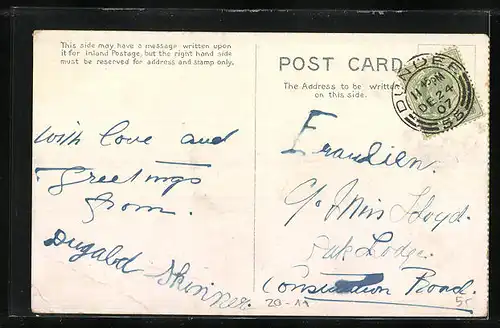 This side may have a message written upon
it for Inland Postage, but the right hand side
must be reserved for address and stamp only.
With love and
Greetings
from.
Dugald Skinner.
POST CARD
The Address to be written
on this side.
DUNDEE
DE 24
07
Fraulien.
c/o Miss Lloyd.
Lodge.
Road.
20-11